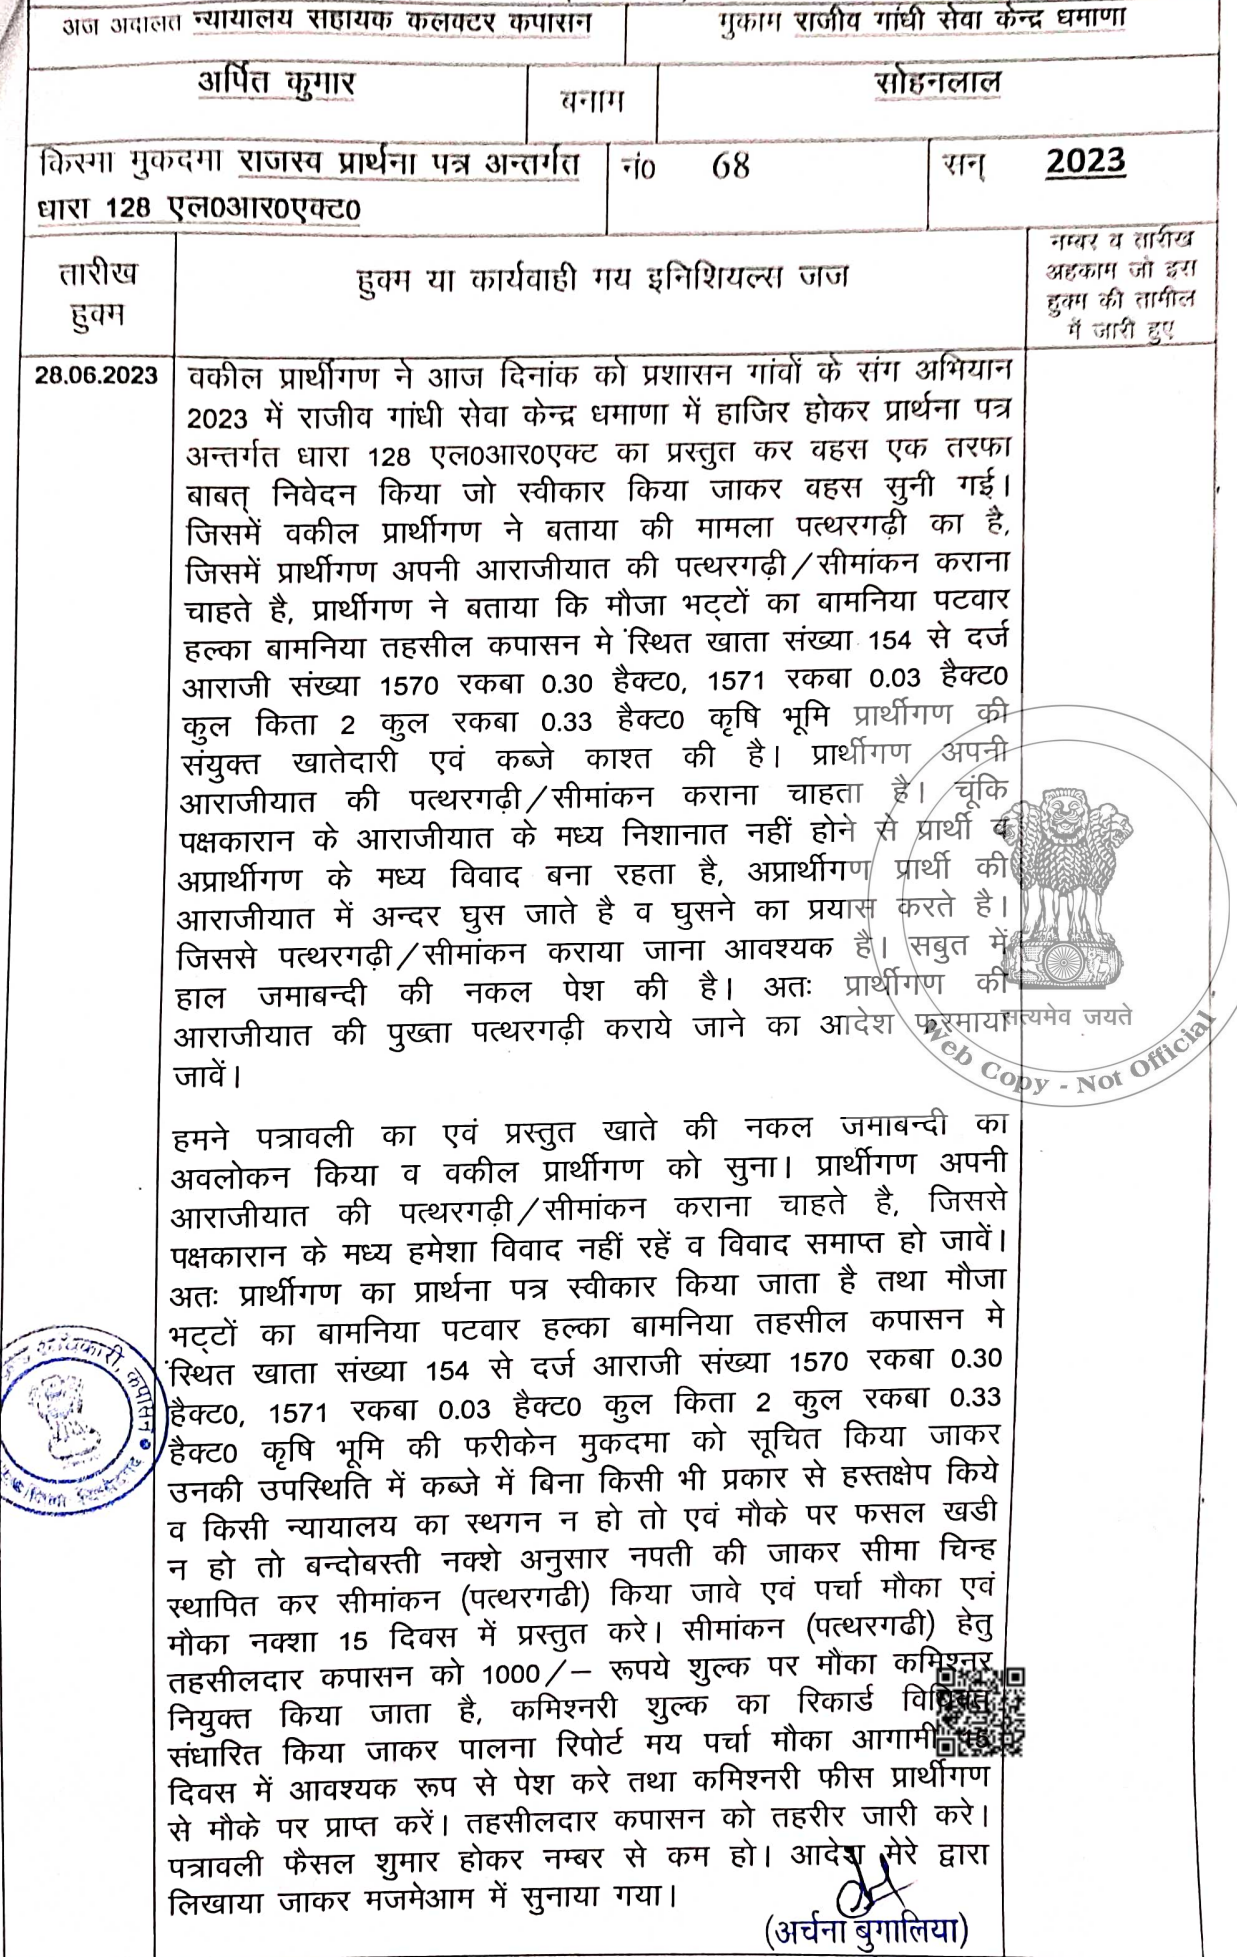 अज अदालत न्यायालय सहायक कलक्टर कपासन
मुकाम राजीव गांधी सेवा केन्द्र धमाणा
अर्पित कुमार
बनाम
सोहनलाल
किस्मा मुकदमा राजस्व प्रार्थना पत्र अन्तर्गत
धारा 128 एल0आर0एक्ट0
नं0 68
सन् 2023
तारीख
हुक्म
हुक्म या कार्यवाही मय इनिशियल्स जज
नम्बर व तारीख
अहकाम जो इस
हुक्म की तामील
में जारी हुए
28.06.2023
वकील प्रार्थीगण ने आज दिनांक को प्रशासन गांवों के संग अभियान
2023 में राजीव गांधी सेवा केन्द्र धमाणा में हाजिर होकर प्रार्थना पत्र
अन्तर्गत धारा 128 एल0आर0एक्ट का प्रस्तुत कर वहस एक तरफा
बाबत् निवेदन किया जो स्वीकार किया जाकर वहस सुनी गई।
जिसमें वकील प्रार्थीगण ने बताया की मामला पत्थरगढ़ी का है,
जिसमें प्रार्थीगण अपनी आराजीयात की पत्थरगढ़ी/सीमांकन कराना
चाहते है, प्रार्थीगण ने बताया कि मौजा भट्टों का बामनिया पटवार
हल्का बामनिया तहसील कपासन मे स्थित खाता संख्या 154 से दर्ज
आराजी संख्या 1570 रकबा 0.30 हैक्ट0, 1571 रकबा 0.03 हैक्ट0
कुल किता 2 कुल रकबा 0.33 हैक्ट0 कृषि भूमि प्रार्थीगण की
संयुक्त खातेदारी एवं कब्जे काश्त की है। प्रार्थीगण अपनी
आराजीयात की पत्थरगढ़ी/सीमांकन कराना चाहता है। चूंकि
पक्षकारान के आराजीयात के मध्य निशानात नहीं होने से प्रार्थी व
अप्रार्थीगण के मध्य विवाद बना रहता है, अप्रार्थीगण प्रार्थी की
आराजीयात में अन्दर घुस जाते है व घुसने का प्रयास करते है।
जिससे पत्थरगढ़ी/सीमांकन कराया जाना आवश्यक है। सबुत में
हाल जमाबन्दी की नकल पेश की है। अतः प्रार्थीगण की
आराजीयात की पुख्ता पत्थरगढ़ी कराये जाने का आदेश फरमाया
जावें।
सत्यमेव जयते
Web Copy - Not Official
हमने पत्रावली का एवं प्रस्तुत खाते की नकल जमाबन्दी का
अवलोकन किया व वकील प्रार्थीगण को सुना। प्रार्थीगण अपनी
आराजीयात की पत्थरगढ़ी/सीमांकन कराना चाहते है, जिससे
पक्षकारान के मध्य हमेशा विवाद नहीं रहें व विवाद समाप्त हो जावें।
अतः प्रार्थीगण का प्रार्थना पत्र स्वीकार किया जाता है तथा मौजा
भट्टों का बामनिया पटवार हल्का बामनिया तहसील कपासन मे
स्थित खाता संख्या 154 से दर्ज आराजी संख्या 1570 रकबा 0.30
हैक्ट0, 1571 रकबा 0.03 हैक्ट0 कुल किता 2 कुल रकबा 0.33
हैक्ट0 कृषि भूमि की फरीकेन मुकदमा को सूचित किया जाकर
उनकी उपस्थिति में कब्जे में बिना किसी भी प्रकार से हस्तक्षेप किये
व किसी न्यायालय का स्थगन न हो तो एवं मौके पर फसल खडी
न हो तो बन्दोबस्ती नक्शे अनुसार नपती की जाकर सीमा चिन्ह
स्थापित कर सीमांकन (पत्थरगढी) किया जावे एवं पर्चा मौका एवं
मौका नक्शा 15 दिवस में प्रस्तुत करे। सीमांकन (पत्थरगढी) हेतु
तहसीलदार कपासन को 1000/– रूपये शुल्क पर मौका कमिश्नर
नियुक्त किया जाता है, कमिश्नरी शुल्क का रिकार्ड
संधारित किया जाकर पालना रिपोर्ट मय पर्चा मौका आगामी
दिवस में आवश्यक रूप से पेश करे तथा कमिश्नरी फीस प्रार्थीगण
से मौके पर प्राप्त करें। तहसीलदार कपासन को तहरीर जारी करे।
पत्रावली फैसल शुमार होकर नम्बर से कम हो। आदेश मेरे द्वारा
लिखाया जाकर मजमेआम में सुनाया गया।
(अर्चना बुगालिया)
कपासन